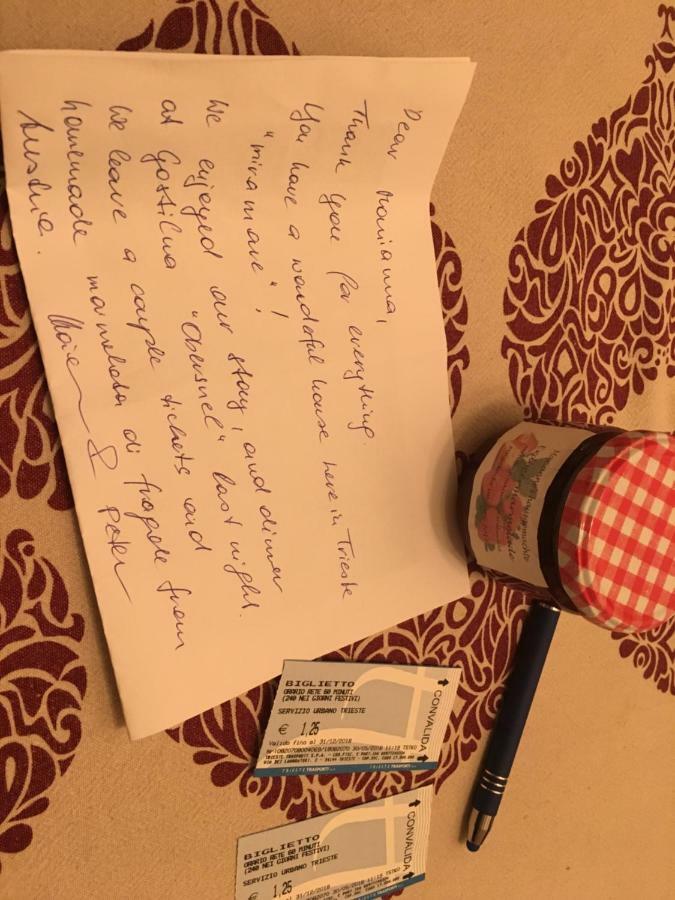 Dear Marianna,
Thank you for everything.
You have a wonderful house here in Trieste
"miramare"!
We enjoyed our stay, and dinner
at Gostilna "Obersnel" last night.
We leave a couple tickets and
homemade marmelata di fragole from
Austria.
& Peter
BIGLIETTO
ORARIO RETE 60 MINUTI
(240 NEI GIORNI FESTIVI)
SERVIZIO URBANO TRIESTE
€ 1,25
Valido fino al 31/12/2018
TRIESTE TRASPORTI
CONVALIDA
BIGLIETTO
ORARIO RETE 60 MINUTI
(240 NEI GIORNI FESTIVI)
SERVIZIO URBANO TRIESTE
€ 1,25
CONVALIDA